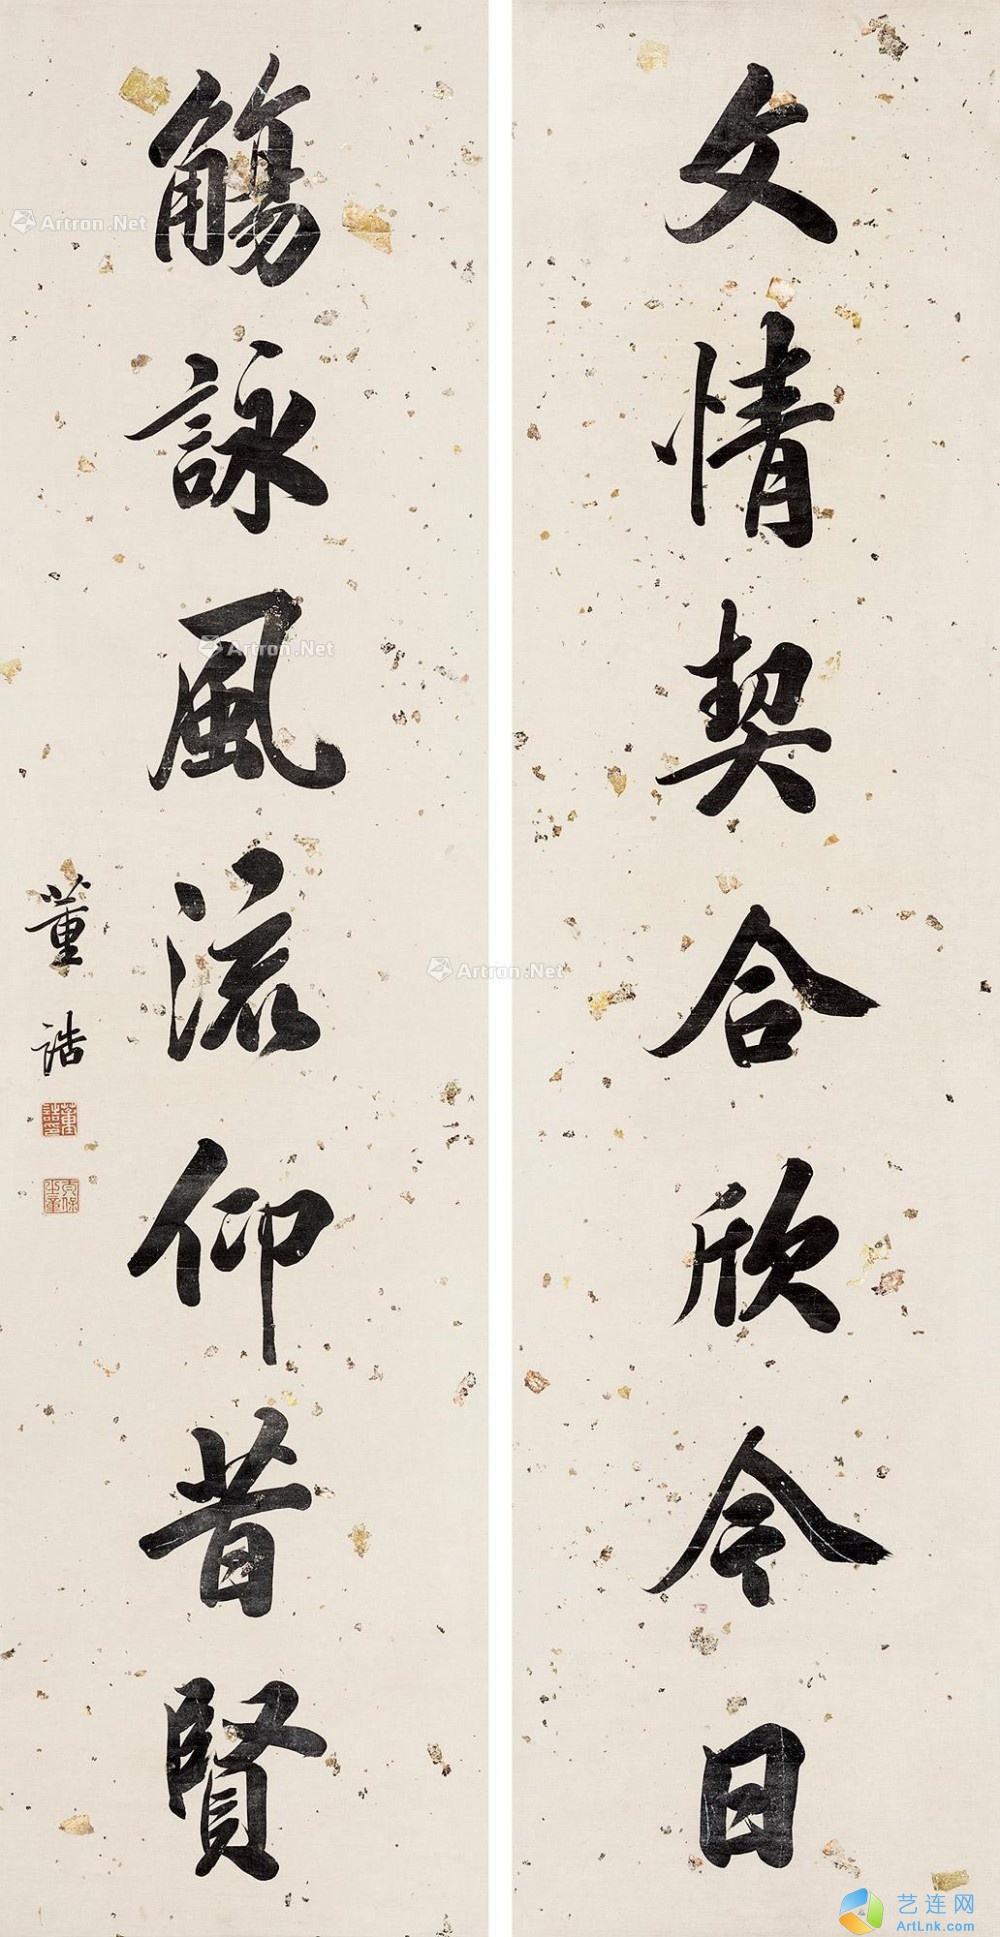 文情契合欣今日
觴詠風流仰昔賢
董誥
董誥之印
Artron.Net
Artron.Net
Artron.Net
艺连网
ArtLnk.com